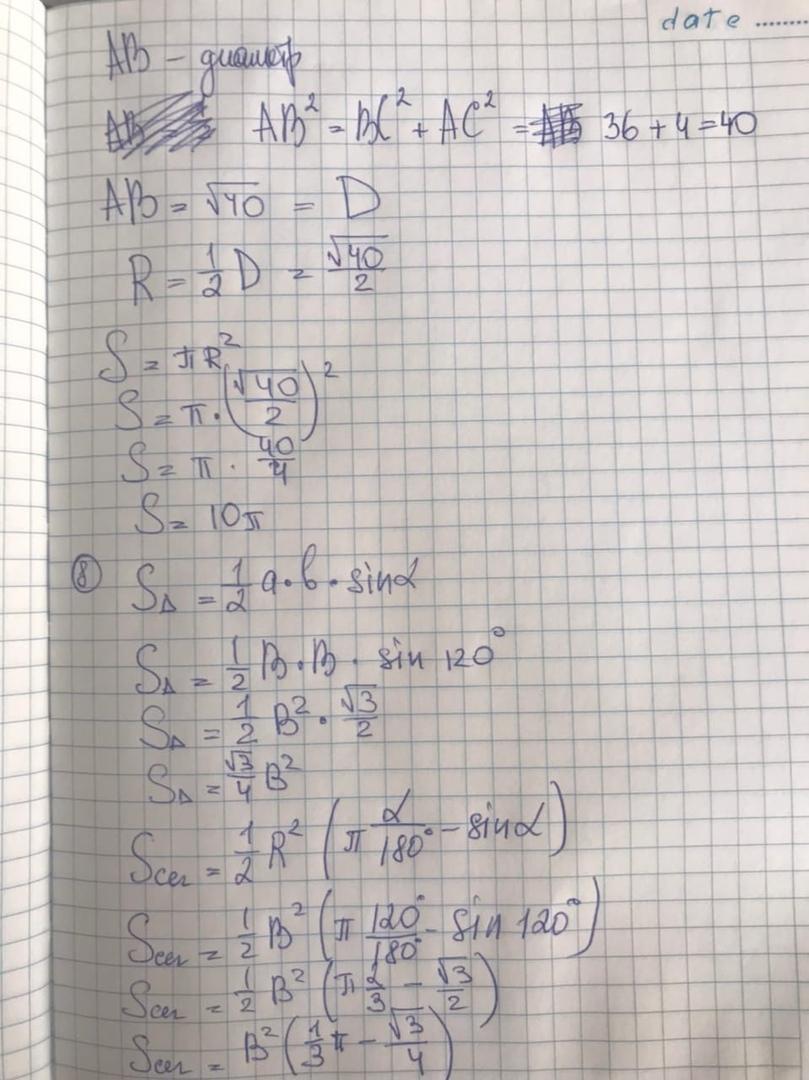 date ........
AB – диаметр
AB² = BC² + AC² = 36 + 4 = 40
AB = √40 = D
R = 1/2 D = √40/2
S = πR²
S = π · (√40/2)²
S = π · 40/4
S = 10π
⑧ S△ = 1/2 a · b · sinα
S△ = 1/2 B · B · sin 120°
S△ = 1/2 B² · √3/2
S△ = √3/4 B²
Sсег = 1/2 R² (π α/180° – sinα)
Sсег = 1/2 B² (π 120°/180° – sin 120°)
Sсег = 1/2 B² (π 2/3 – √3/2)
Sсег = B² (1/3 π – √3/4)